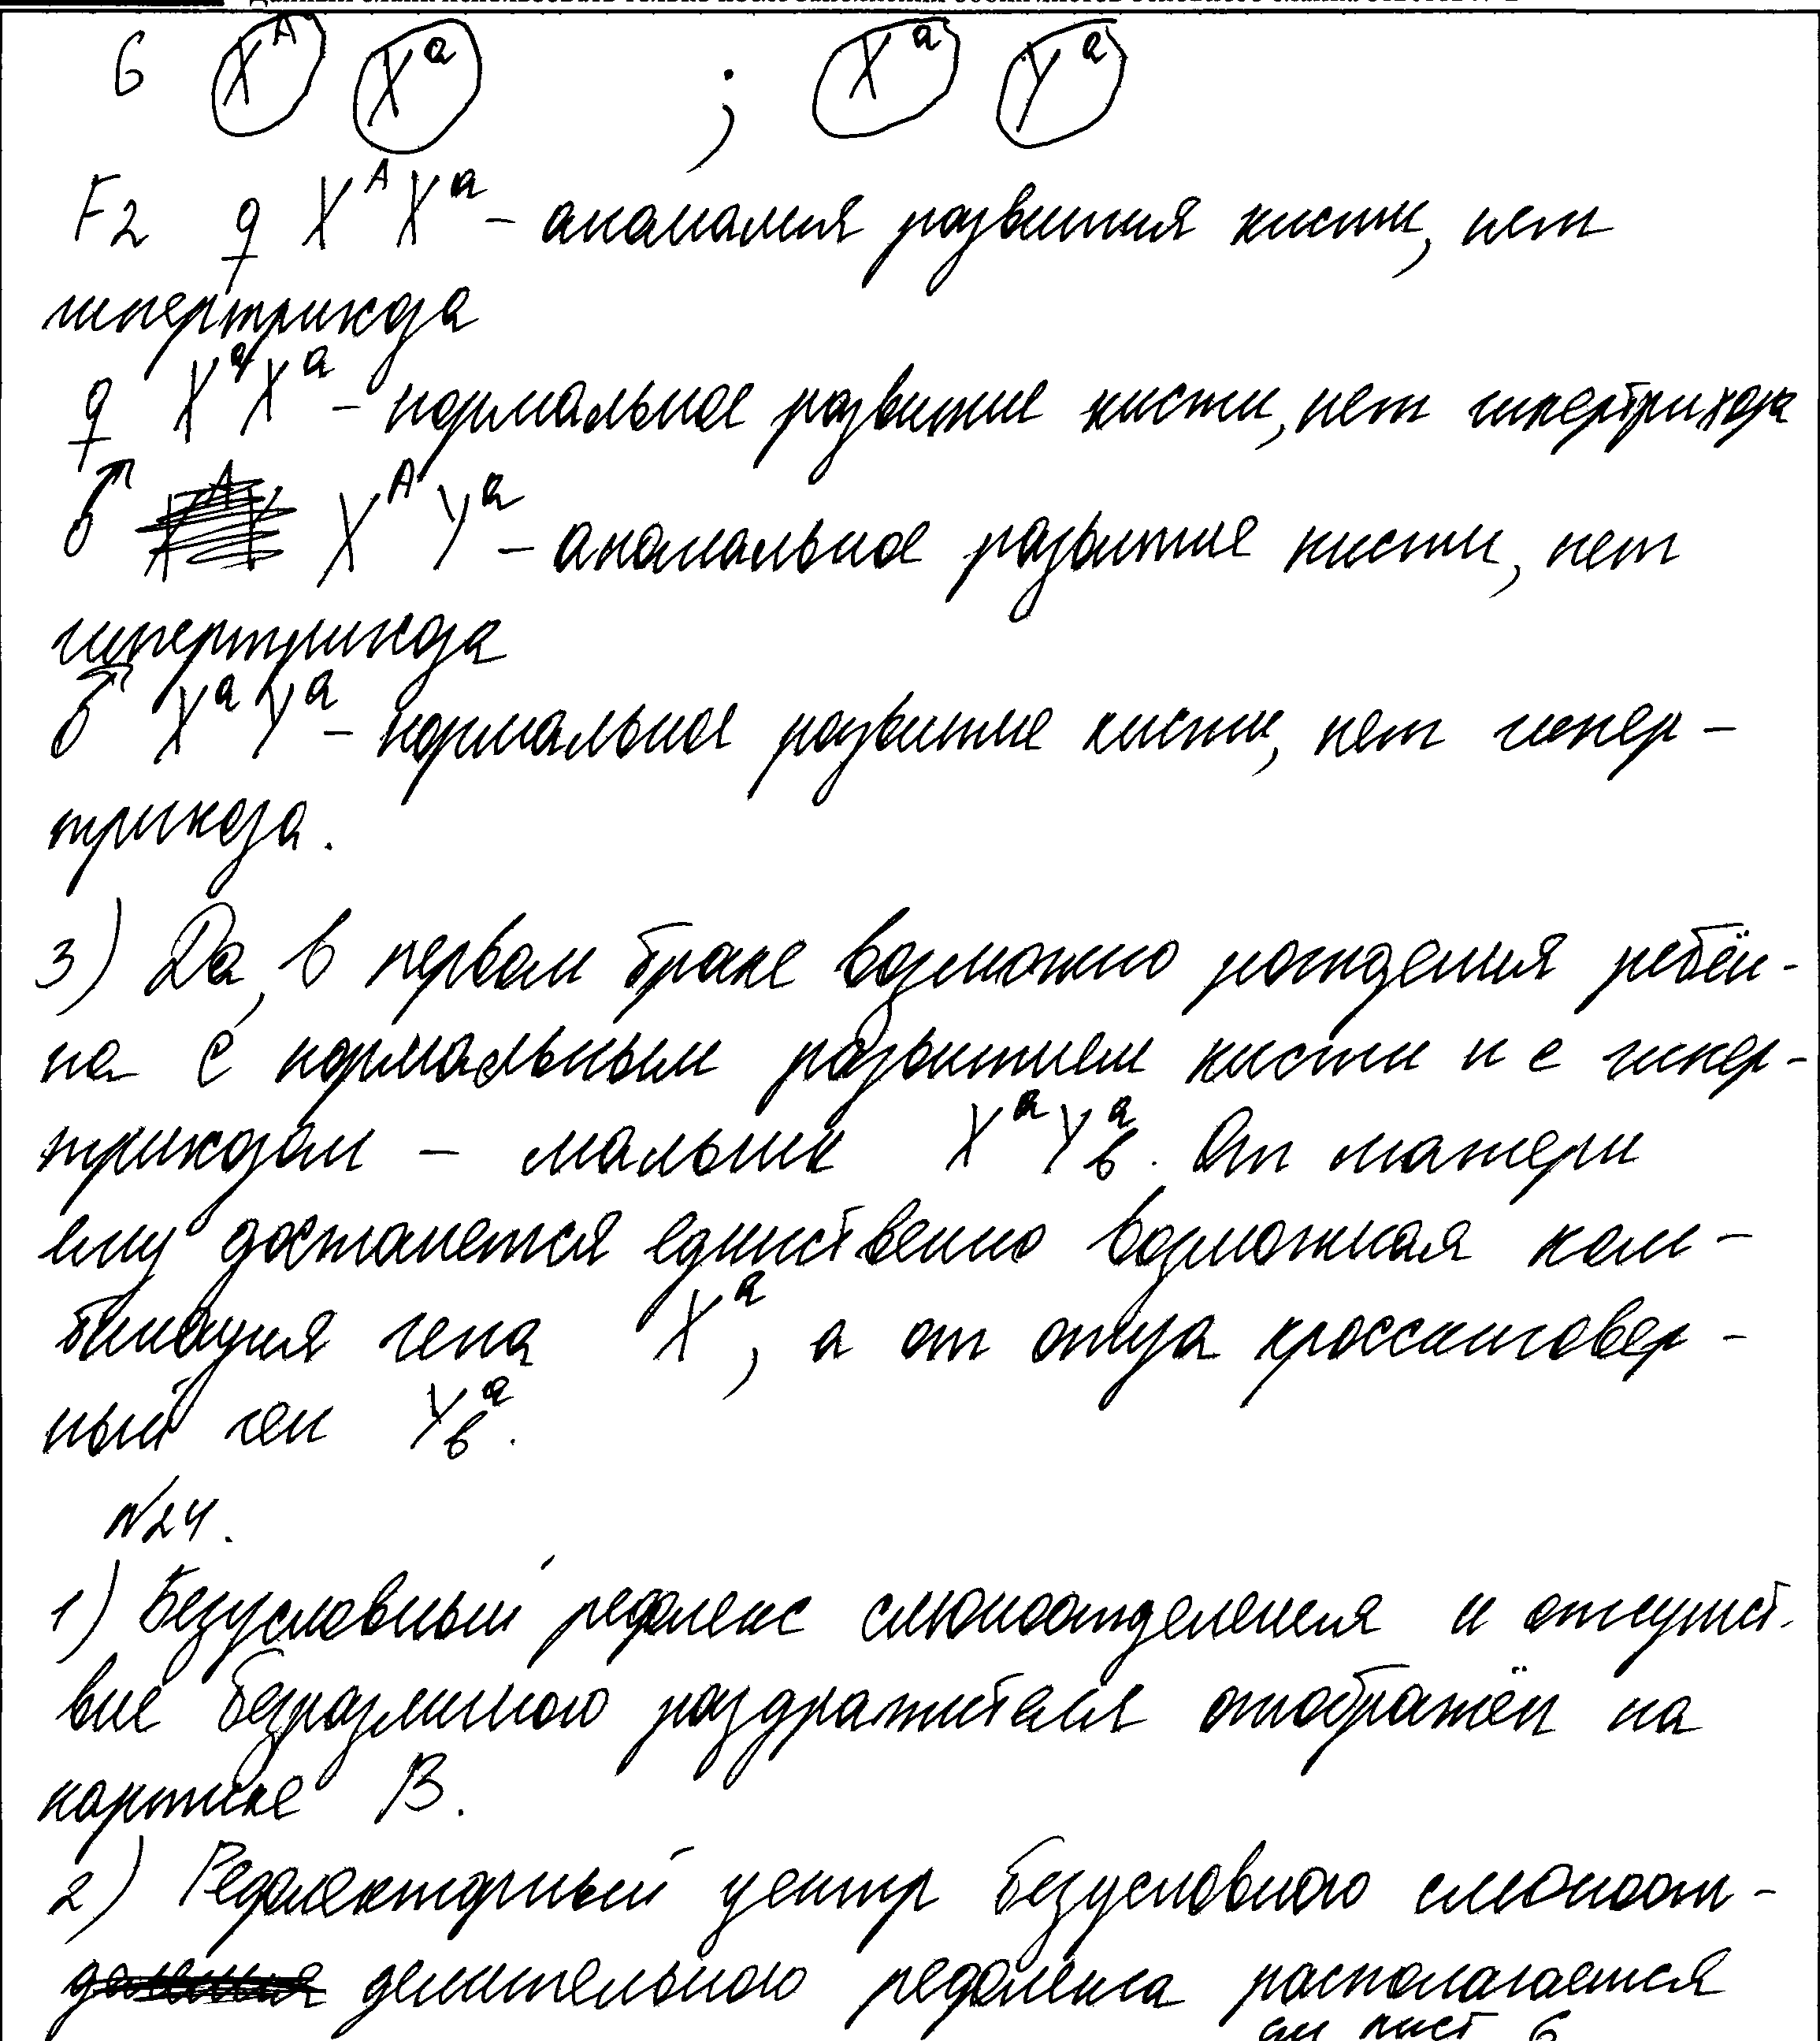 G X^A X^a ; X^a Y^a
F2 ♀ X^A X^a – аномалия развития кисти, нет
гипертрихоза
♀ X^a X^a – нормальное развитие кисти, нет гипертрихоза
♂ X^A Y^a – аномальное развитие кисти, нет
гипертрихоза
♂ X^a Y^a – нормальное развитие кисти, нет гипер-
трихоза.
3) Да, в первом браке возможно рождения ребён-
ка с нормальным развитием кисти и с гипер-
трихозом – мальчик X^a Y^a_b. От матери
ему достанется единственно возможная ком-
бинация гена X^a, а от отца кроссинговер-
ный ген Y^a_b.
№24.
1) Безусловный рефлекс слюноотделения и отсутст-
вие безразличного раздражителя отображён на
картике В.
2) Рефлекторный центр безусловного слюноот-
делительного рефлекса располагается
см лист 6